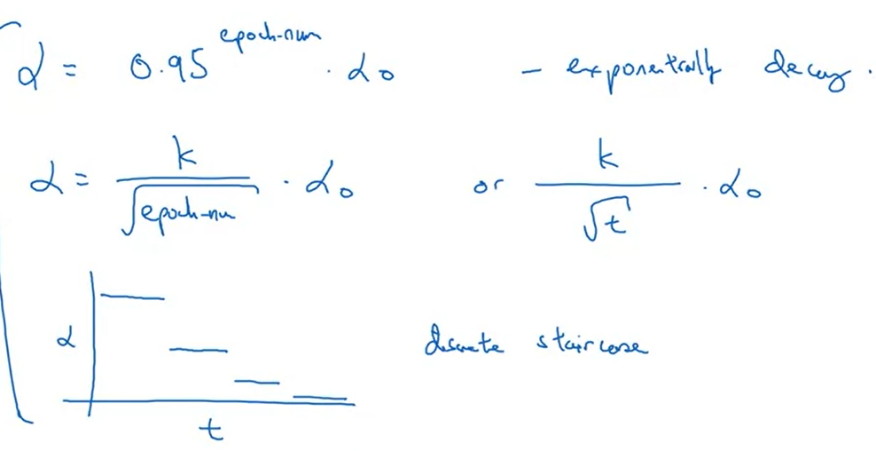 α = 0.95^epoch-num · α₀ - exponentially decay.
α = k/√epoch-nu · α₀ or k/√t · α₀
α discrete staircase
t